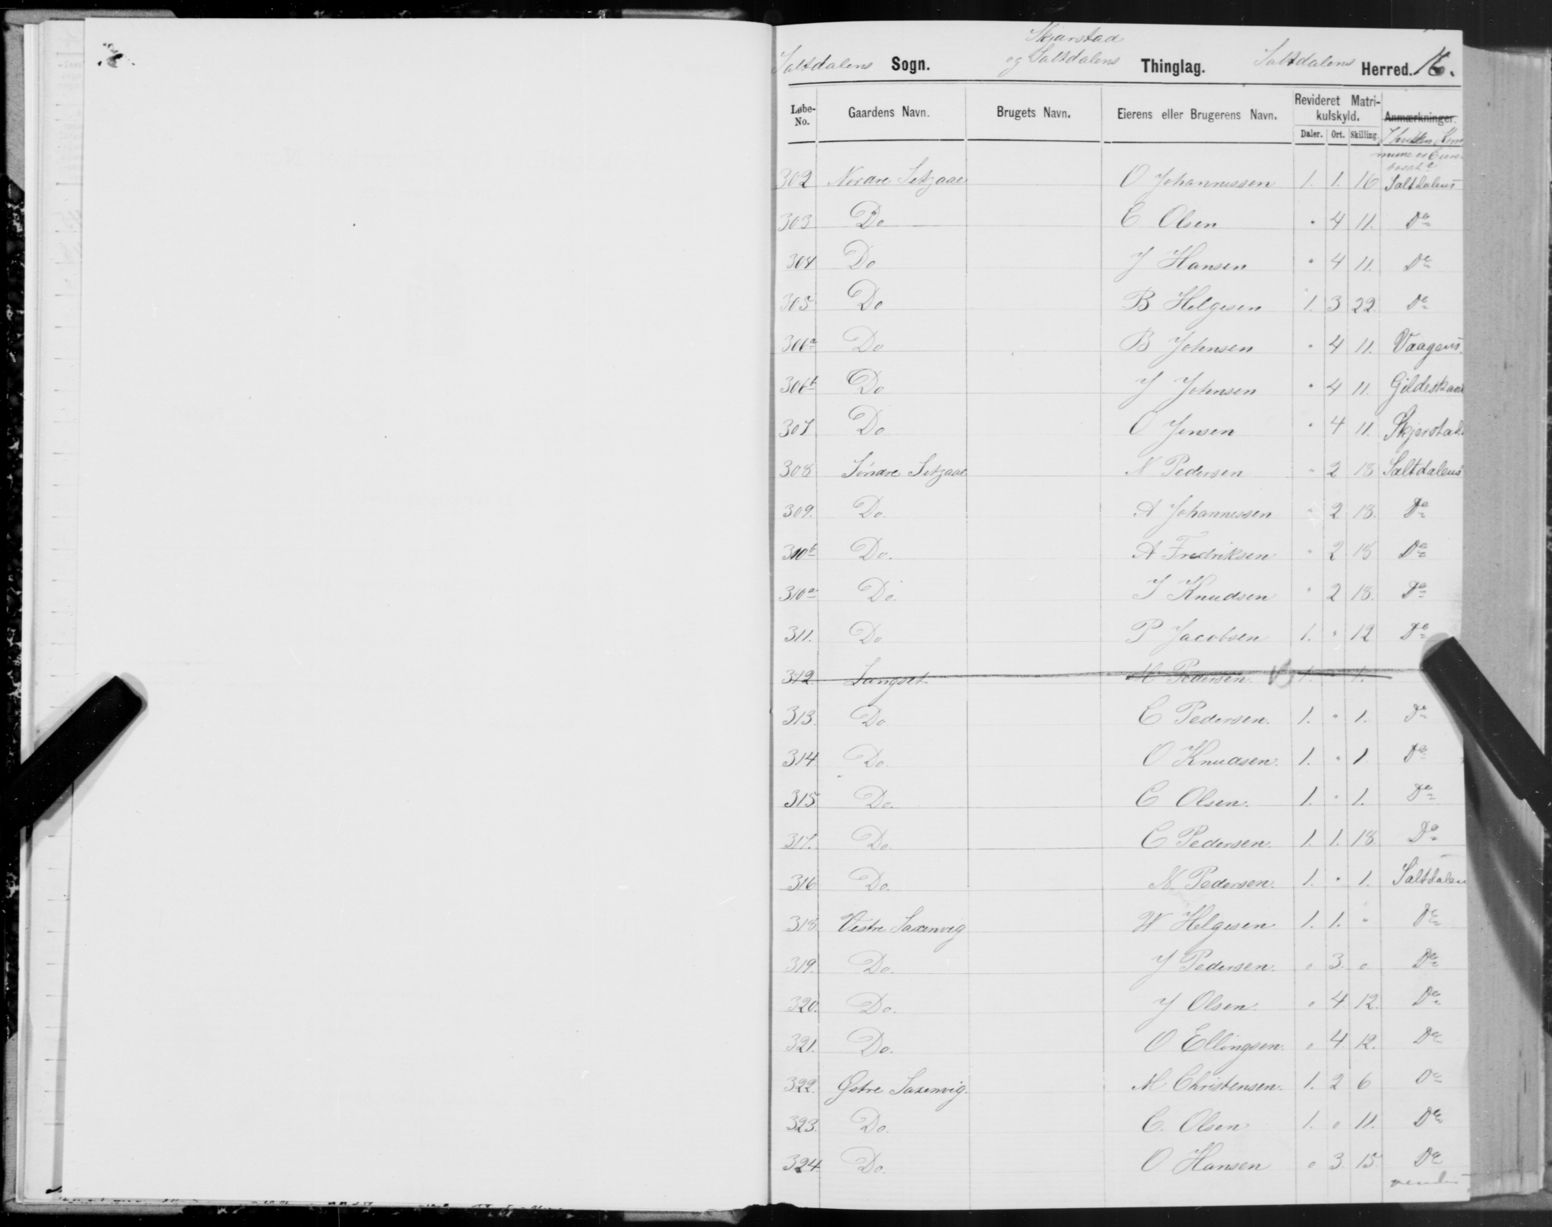 Skjærstad
Saltdalens Sogn. og Saltdalens Thinglag. Saltdalens Herred. 16.
Løbe-No. Gaardens Navn. Brugets Navn. Eierens eller Brugerens Navn. Revideret Matrikulskyld. Anmærkninger
Daler. Ort. Skilling
302 Nordre Setzaae O Johannessen 1. 1. 16 Saltdalens
303 Do C Olsen " 4 11. Do
304 Do J Hansen " 4 11. Do
305 Do B Helgesen 1. 3 22 Do
306a Do B Johnsen " 4 11. Vaagens
306b Do J Johnsen " 4 11. Gildeskaal
307 Do O Jensen " 4 11. Skjerstad
308 Søndre Setzaae N Pedersen " 2 18 Saltdalens
309. Do. A Johannessen " 2 18. Do
310b Do. A Fredriksen " 2 18 Do
310a Do. I Knudsen " 2 18. Do
311. Do P Jacobsen 1. " 12 Do
312 Langset M Pedersen 1. " 1.
313. Do C Pedersen. 1. " 1. Do
314 Do. O Knudsen. 1. " 1 Do
315 Do. C Olsen. 1. " 1. Do
317. Do. C Pedersen. 1. 1. 18 Do
316 Do. N Pedersen. 1. " 1. Saltdalen
318 Vestre Saxenvig W Helgesen 1. 1. " Do
319. Do. J Pedersen. " 3 " Do
320. Do. J Olsen. " 4 12. Do
321. Do. O Ellingsen. " 4 12. Do
322. Østre Saxenvig. M Christensen. 1. 2 6 Do
323. Do. C. Olsen 1. " 11. Do
324 Do. O Hansen " 3 15 Do